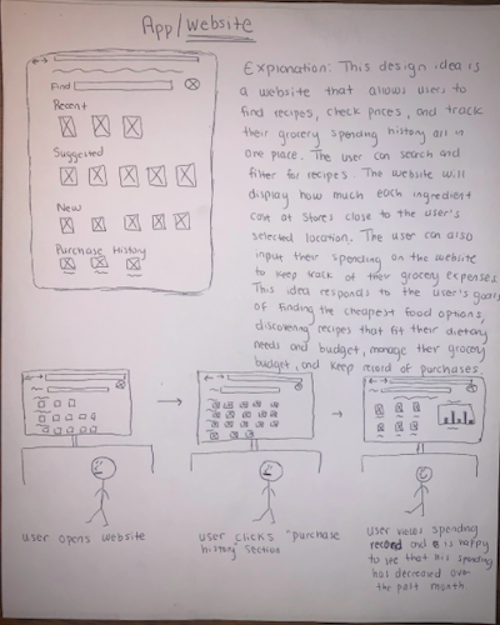 App/website
Find
Recent
Suggested
New
Purchase History
Explanation: This design idea is
a website that allows users to
find recipes, check prices, and track
their grocery spending history all in
one place. The user can search and
filter for recipes. The website will
display how much each ingredient
cost at stores close to the user's
selected location. The user can also
input their spending on the website
to keep track of their grocery expenses.
This idea responds to the user's goals
of finding the cheapest food options,
discovering recipes that fit their dietary
needs and budget, manage their grocery
budget, and keep record of purchases.
user opens website
user clicks "purchase
history" section
user views spending
record and is happy
to see that his spending
has decreased over
the past month